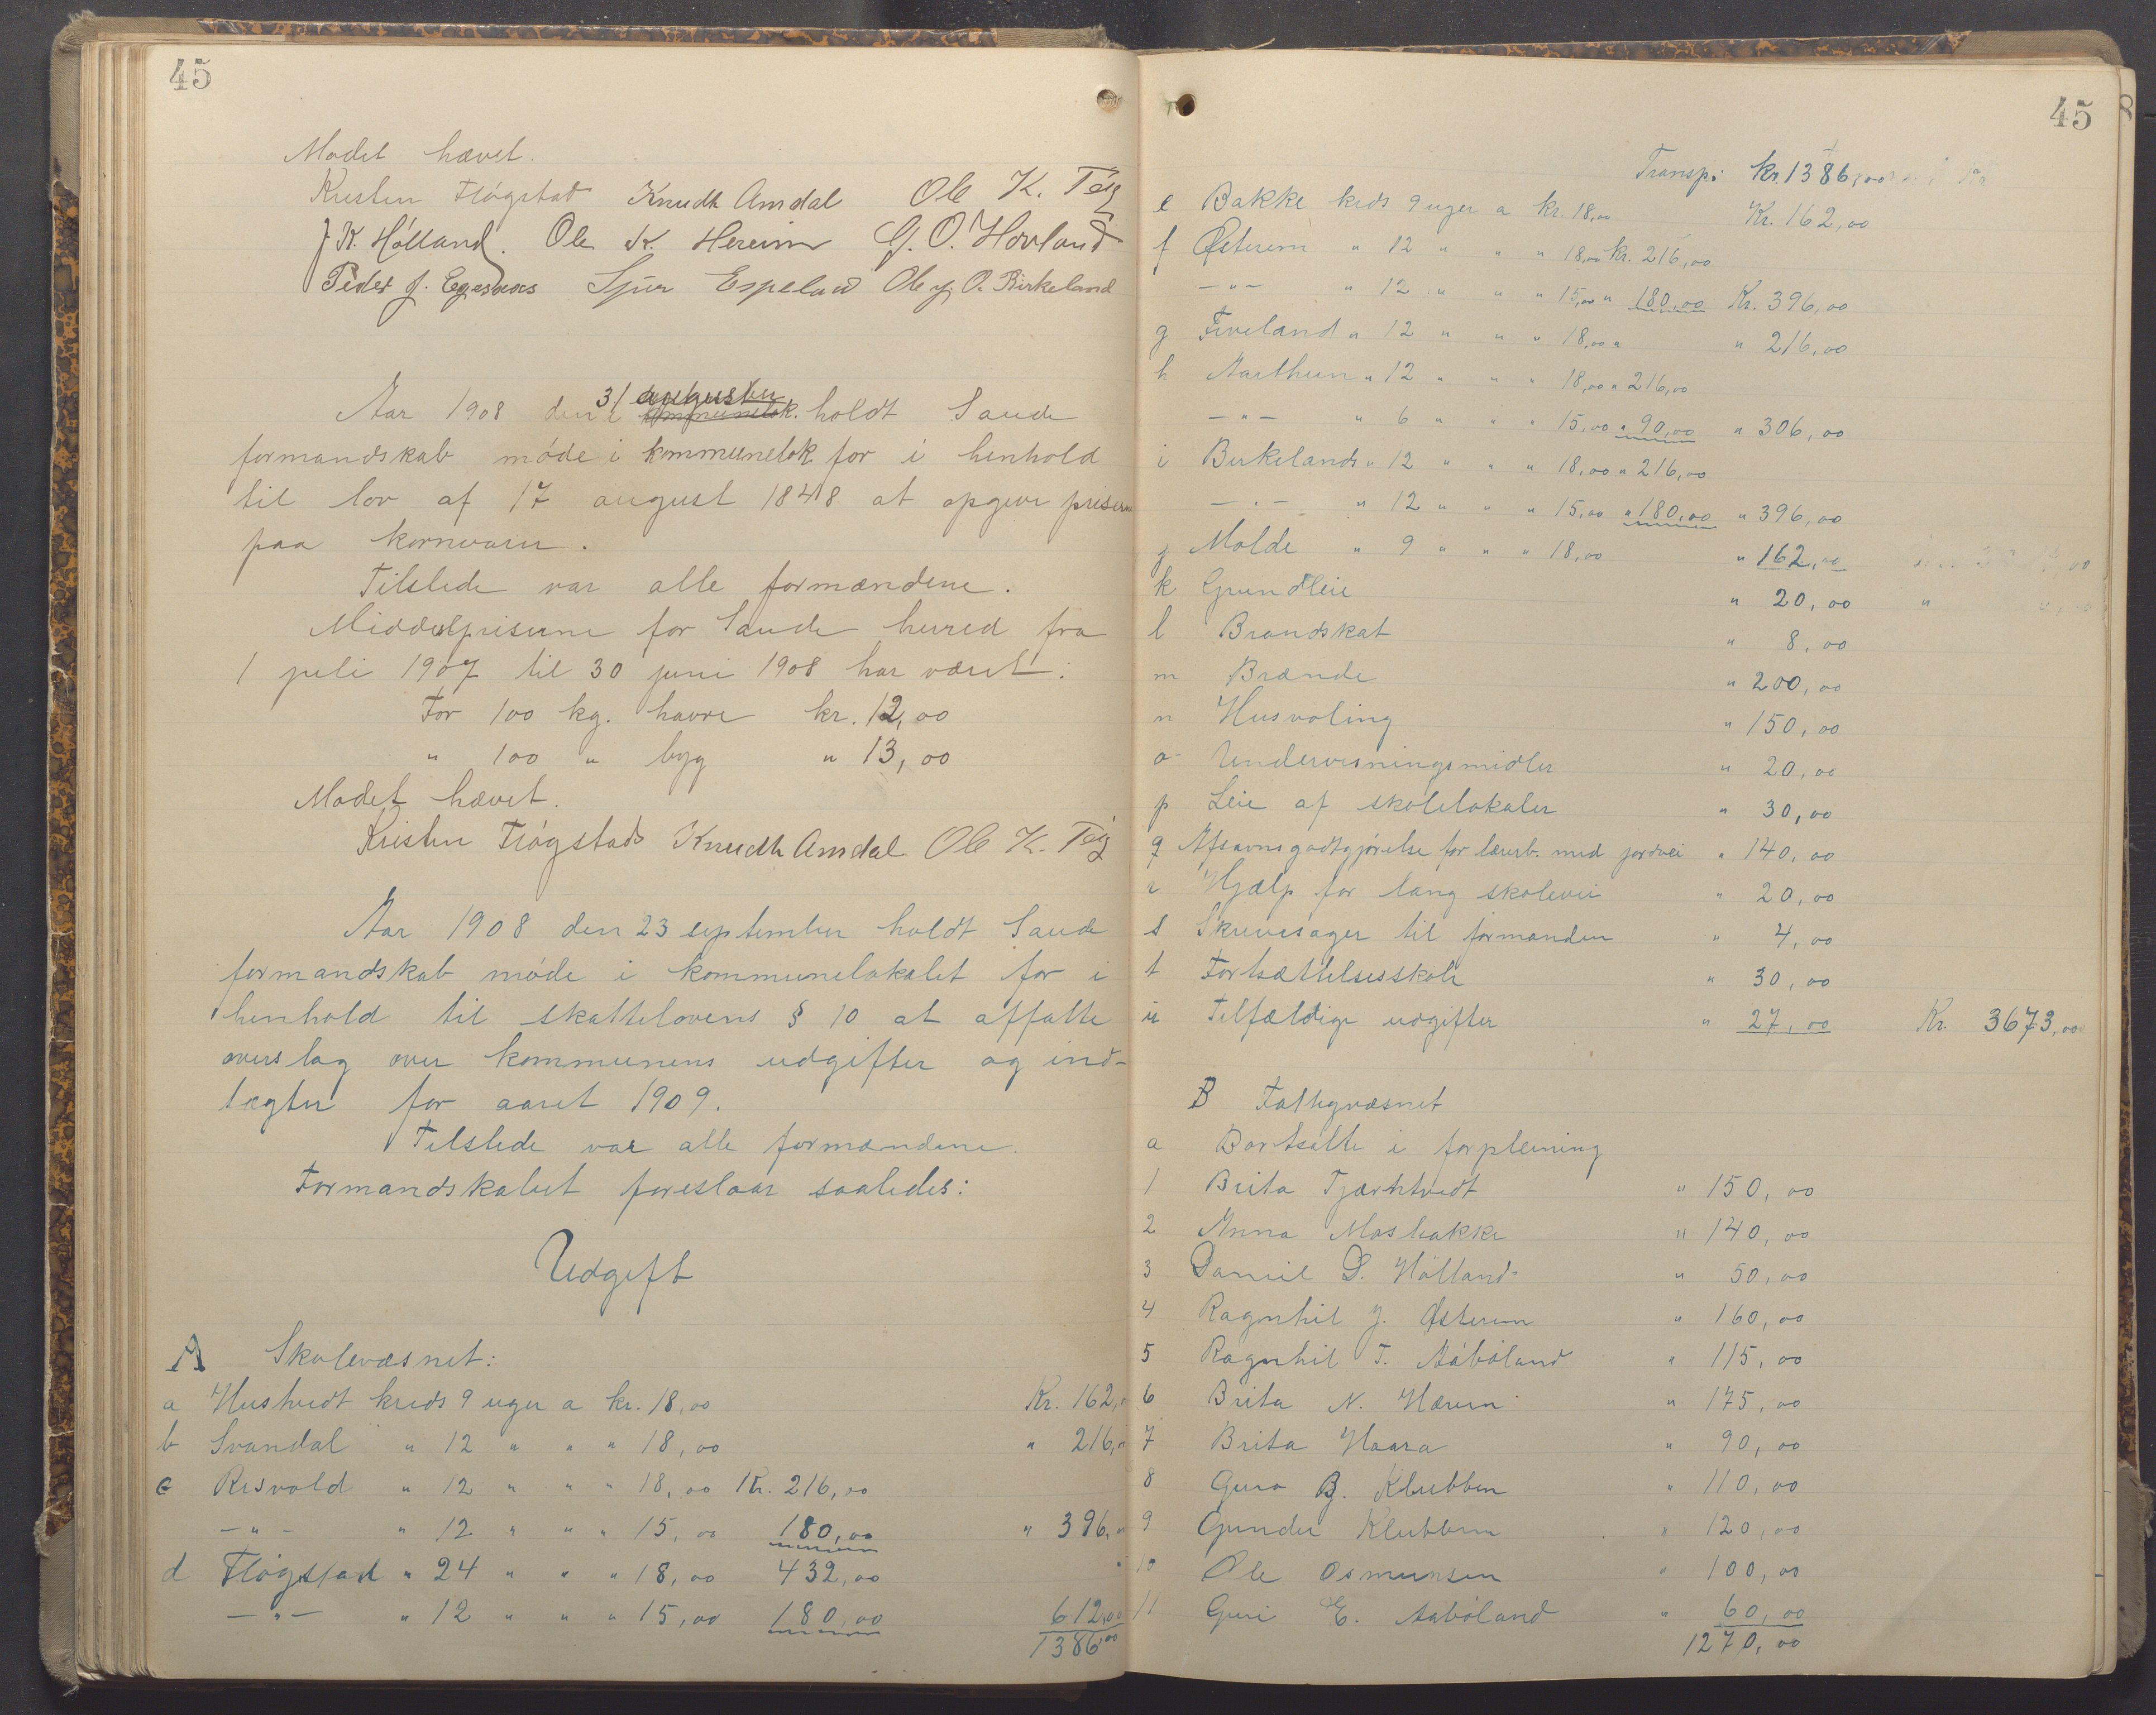 45
Mødet hævet.
Kristen Fløgstad Knudt Amdal Ole K. Teig
J. K. Hölland. Ole K. Hereim G. O. Hovland
Peder J. Egesnæs Sjur Espeland Ole O. Birkeland
Aar 1908 den 31 augusten holdt Saude
formandskab møde i kommunelok for i henhold
til lov af 17 august 1848 at opgive priserne
paa kornvarer.
Tilstede var alle formændene.
Middelpriserne for Saude herred fra
1 juli 1907 til 30 juni 1908 har været:
For 100 kg. havre kr. 12,00
" 100 " byg " 13,00
Mødet hævet.
Kristen Fløgstad Knudt Amdal Ole K. Teig
Aar 1908 den 23 september holdt Saude
formandskab møde i kommunelokalet for i
henhold til skattelovens § 10 at affatte
overslag over kommunens udgifter og ind-
tægter for aaret 1909.
Tilstede var alle formændene.
Formandskabet foreslaar saaledes:
Udgift
A Skolevæsnet:
a Hustvedt kreds 9 uger a kr. 18,00 Kr. 162,
b Svandal " 12 " " " 18,00 " 216,
c Risvold " 12 " " " 18,00 Kr. 216,00
-"- " 12 " " " 15,00 180,00 " 396,
d Fløgstad " 24 " " " 18,00 432,00
-"- " 12 " " " 15,00 180,00 612,00
1386,00
45
Transp: kr. 1386,00
e Bakke kreds 9 uger a kr. 18,00 Kr. 162,00
f Østerein " 12 " " " 18,00 kr. 216,00
-"- " 12 " " " 15,00 " 180,00 Kr. 396,00
g Fiveland " 12 " " " 18,00 " " 216,00
h Aarthun " 12 " " " 18,00 " 216,00
-"- " 6 " " " 15,00 " 90,00 " 306,00
i Birkelands " 12 " " " 18,00 " 216,00
-"- " 12 " " " 15,00 " 180,00 " 396,00
j Molde " 9 " " " 18,00 " 162,00
k Grundleie " 20,00
l Brandskat " 8,00
m Brænde " 200,00
n Husvoling " 150,00
o Undervisningsmidler " 20,00
p Leie af skolelokaler " 30,00
q Afsavnsgodtgjørelse for lærerb. med jordvei " 140,00
r Hjælp for lang skolevei " 20,00
s Skrivesager til formanden " 4,00
t Fortsættelsesskole " 30,00
u Tilfældige udgifter " 27,00 Kr. 3673,00
B Fattigvæsnet
a Bortsatte i forpleining
1 Brita Tjærhtvedt " 150,00
2 Anna Mosbakke " 140,00
3 Daniel D. Hölland " 50,00
4 Ragnhil J. Østerein " 160,00
5 Ragnhil T. Aabøland " 115,00
6 Brita N. Hærein " 175,00
7 Brita Haara " 90,00
8 Guro B. Klubben " 110,00
9 Gunder Klubben " 120,00
10 Ole Osmunsen " 100,00
11 Guri E. Aabøland " 60,00
1270,00